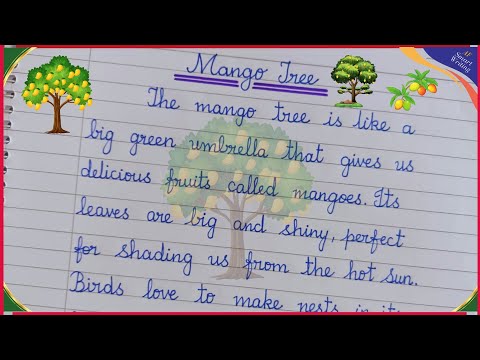 AF
Smart
Writing
Mango Tree
The mango tree is like a
big green umbrella that gives us
delicious fruits called mangoes. Its
leaves are big and shiny, perfect
for shading us from the hot sun.
Birds love to make nests in its